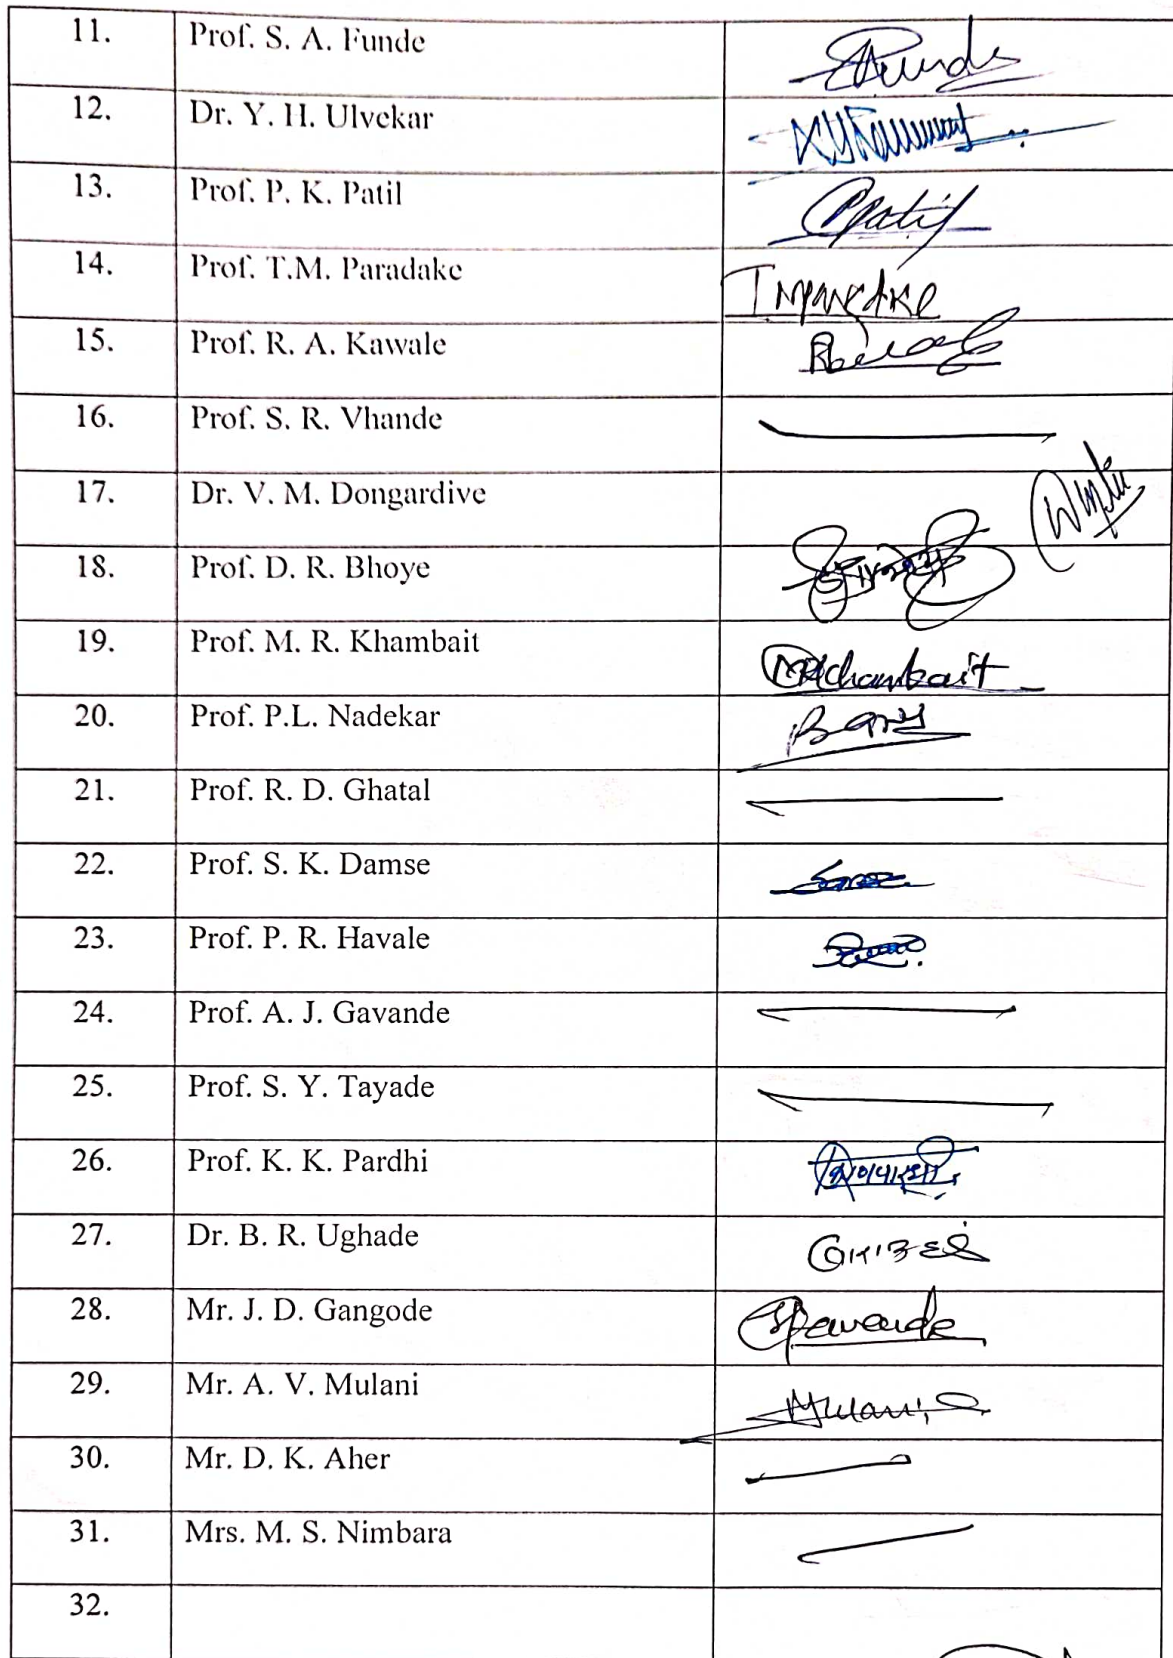 11. Prof. S. A. Funde
12. Dr. Y. H. Ulvekar
13. Prof. P. K. Patil
14. Prof. T.M. Paradake
15. Prof. R. A. Kawale
16. Prof. S. R. Vhande
17. Dr. V. M. Dongardive
18. Prof. D. R. Bhoye
19. Prof. M. R. Khambait
20. Prof. P.L. Nadekar
21. Prof. R. D. Ghatal
22. Prof. S. K. Damse
23. Prof. P. R. Havale
24. Prof. A. J. Gavande
25. Prof. S. Y. Tayade
26. Prof. K. K. Pardhi
27. Dr. B. R. Ughade
28. Mr. J. D. Gangode
29. Mr. A. V. Mulani
30. Mr. D. K. Aher
31. Mrs. M. S. Nimbara
32.